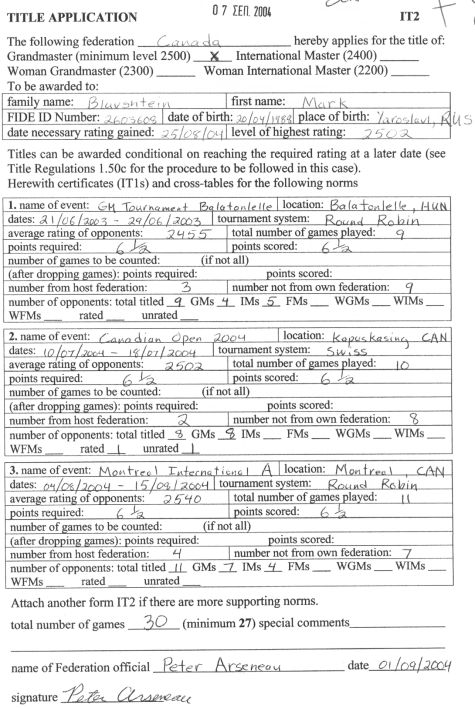 07 ΣΕΠ. 2004
TITLE APPLICATION IT2
The following federation Canada hereby applies for the title of:
Grandmaster (minimum level 2500) X International Master (2400)
Woman Grandmaster (2300) Woman International Master (2200)
To be awarded to:
family name: Bluvshtein first name: Mark
FIDE ID Number: 2603608 date of birth: 20/04/1988 place of birth: Yaroslavl, RUS
date necessary rating gained: 25/08/04 level of highest rating: 2502
Titles can be awarded conditional on reaching the required rating at a later date (see
Title Regulations 1.50c for the procedure to be followed in this case).
Herewith certificates (IT1s) and cross-tables for the following norms
1. name of event: GM Tournament Balatonlelle location: Balatonlelle, HUN
dates: 21/06/2003 - 29/06/2003 tournament system: Round Robin
average rating of opponents: 2455 total number of games played: 9
points required: 6 ½ points scored: 6 ½
number of games to be counted: (if not all)
(after dropping games): points required: points scored:
number from host federation: 3 number not from own federation: 9
number of opponents: total titled 9 GMs 4 IMs 5 FMs WGMs WIMs
WFMs rated unrated
2. name of event: Canadian Open 2004 location: Kapuskasing CAN
dates: 10/07/2004 - 18/07/2004 tournament system: Swiss
average rating of opponents: 2502 total number of games played: 10
points required: 6 ½ points scored: 6 ½
number of games to be counted: (if not all)
(after dropping games): points required: points scored:
number from host federation: 2 number not from own federation: 8
number of opponents: total titled 8 GMs 8 IMs FMs WGMs WIMs
WFMs rated 1 unrated 1
3. name of event: Montreal International A location: Montreal, CAN
dates: 04/08/2004 - 15/08/2004 tournament system: Round Robin
average rating of opponents: 2540 total number of games played: 11
points required: 6 ½ points scored: 6 ½
number of games to be counted: (if not all)
(after dropping games): points required: points scored:
number from host federation: 4 number not from own federation: 7
number of opponents: total titled 11 GMs 7 IMs 4 FMs WGMs WIMs
WFMs rated unrated
Attach another form IT2 if there are more supporting norms.
total number of games 30 (minimum 27) special comments
name of Federation official Peter Arseneau date 01/09/2004
signature Peter Arseneau